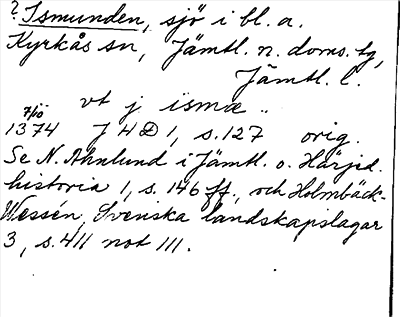 ? Ismunden, sjö i bl. a.
Kyrkås sn, Jämtl. n. doms. tg,
Jämtl. l.
vt j ismæ ..
7/10
1374 J 4 D 1, s. 127 orig.
Se N. Ahnlund i Jämtl. o. Härjed.
historia 1, s. 146 ff., och Holmbäck-
Wessén, Svenska landskapslagar
3, s. 411 not 111.